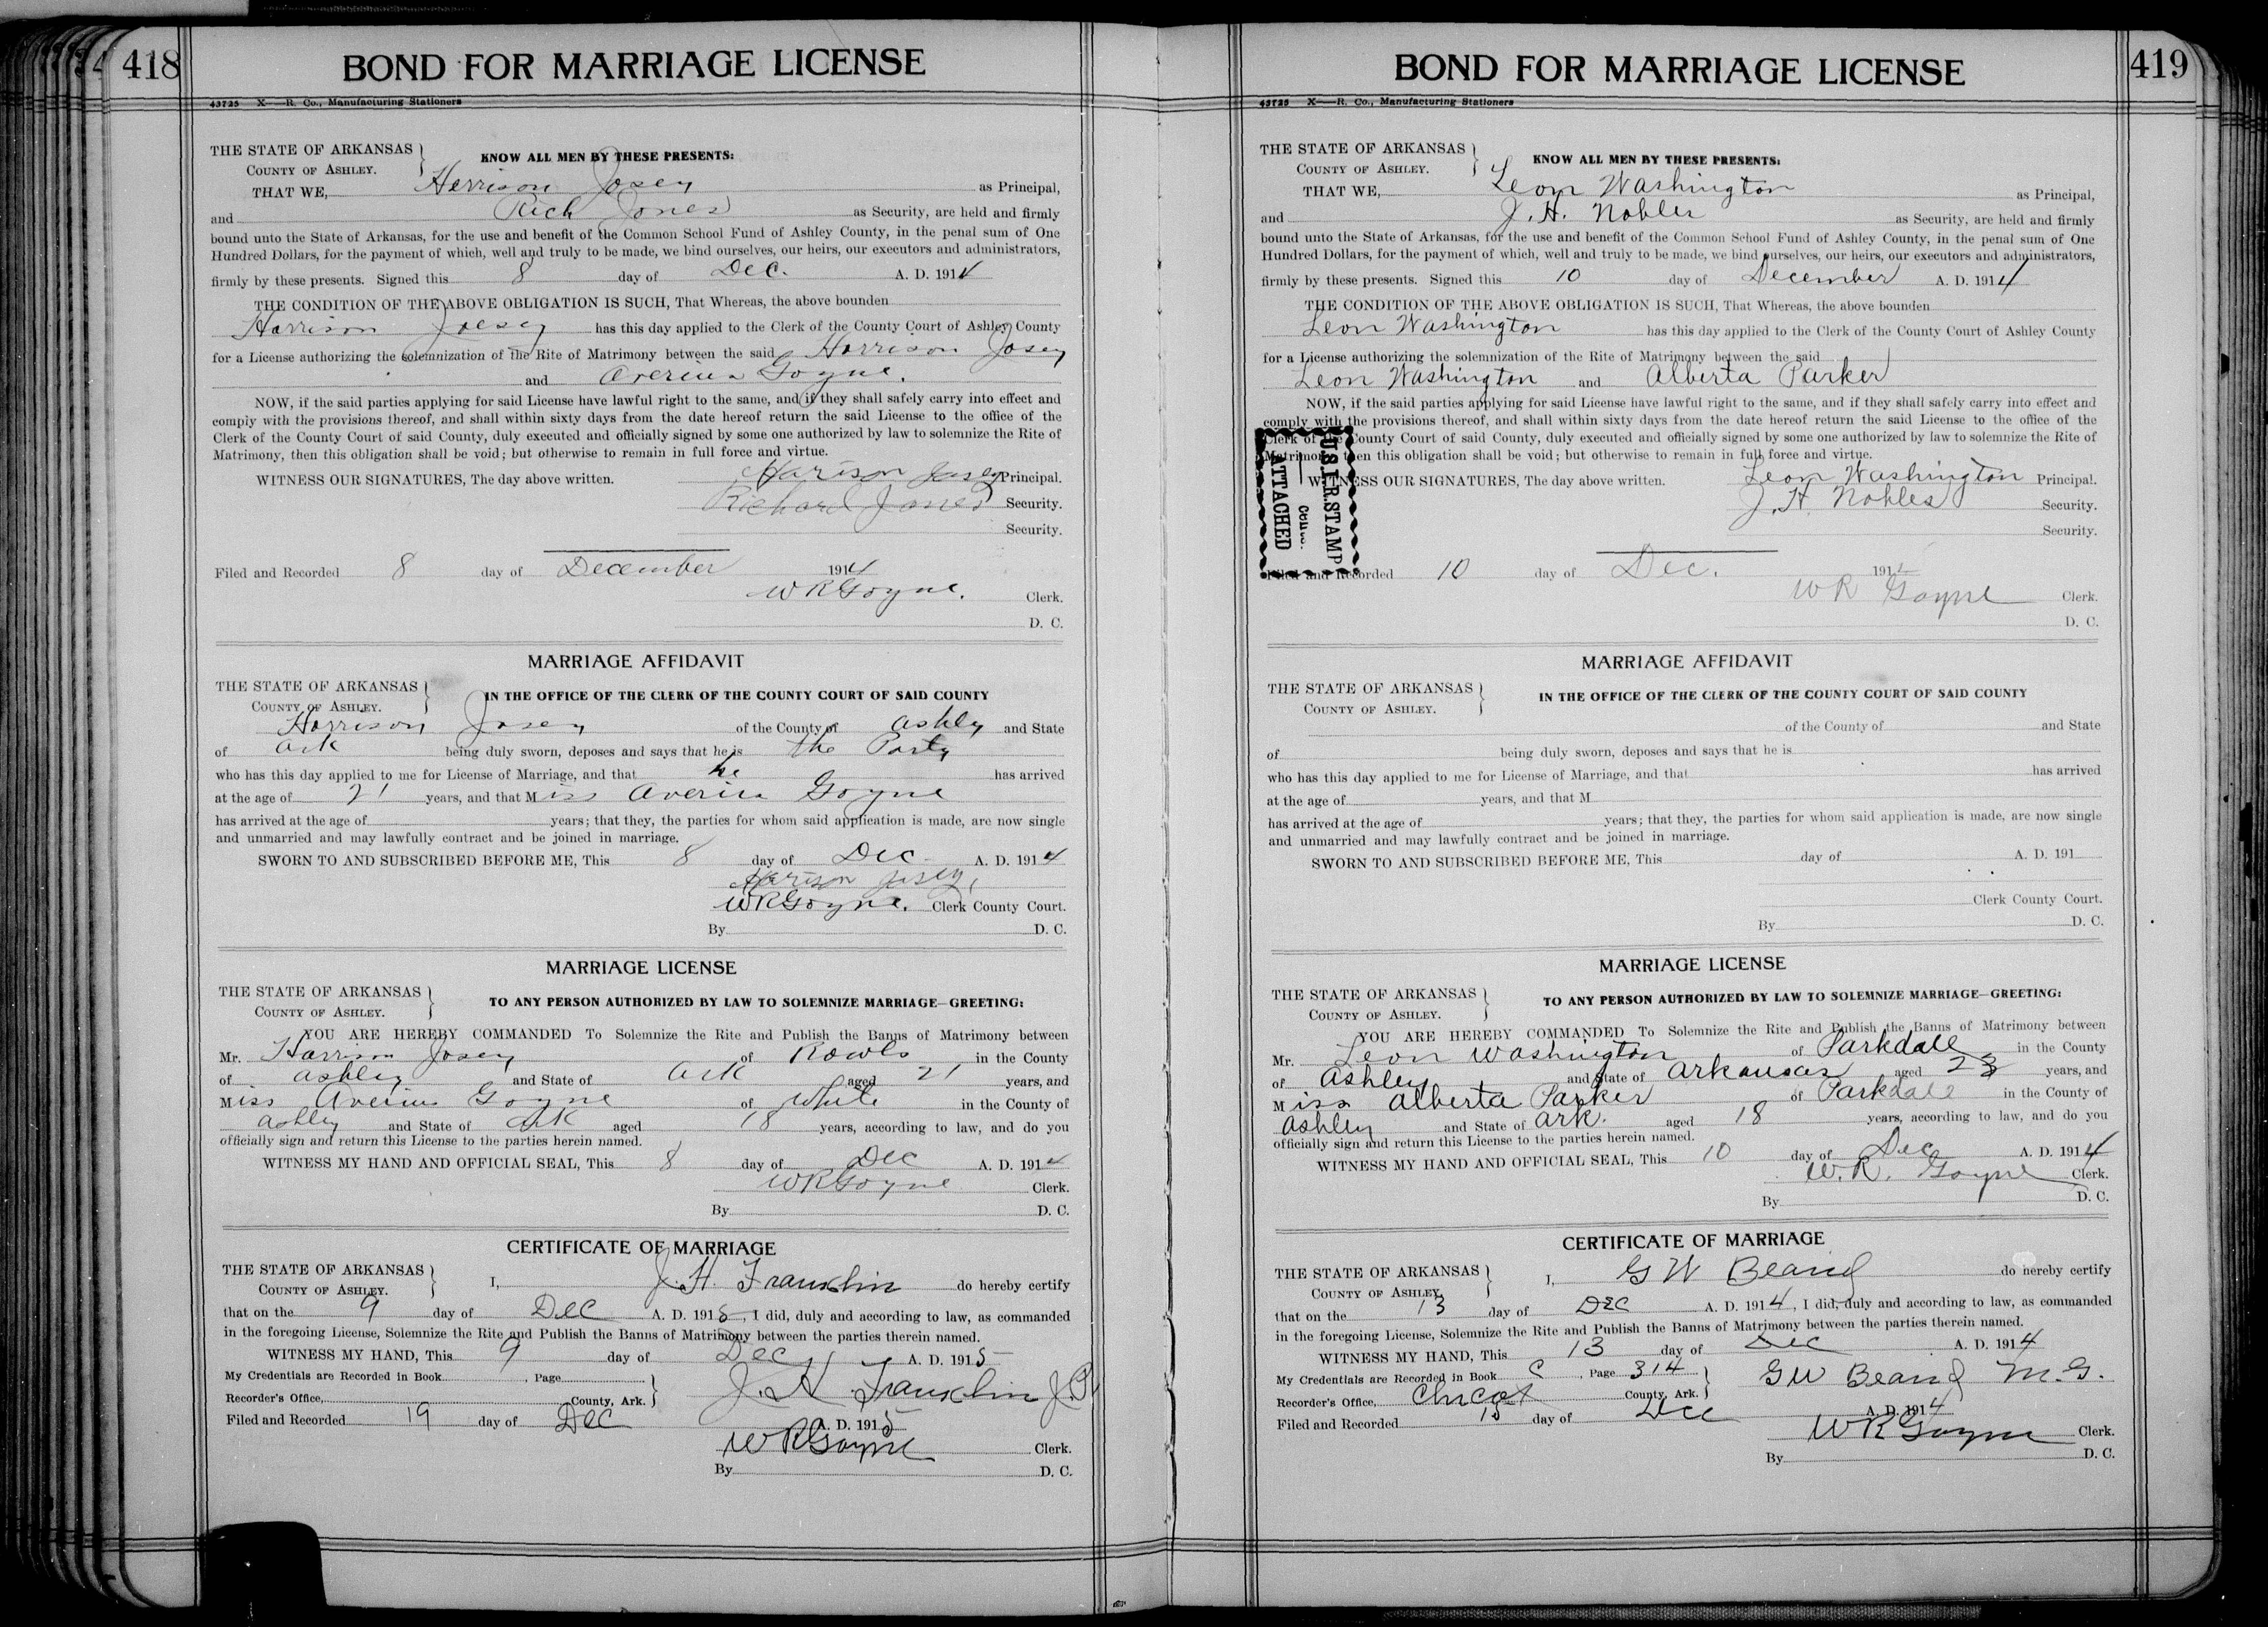 418
BOND FOR MARRIAGE LICENSE
43725 X—R. Co., Manufacturing Stationers
THE STATE OF ARKANSAS
COUNTY OF ASHLEY.
KNOW ALL MEN BY THESE PRESENTS:
THAT WE, Harrison Josey as Principal,
and Rich Jones as Security, are held and firmly
bound unto the State of Arkansas, for the use and benefit of the Common School Fund of Ashley County, in the penal sum of One
Hundred Dollars, for the payment of which, well and truly to be made, we bind ourselves, our heirs, our executors and administrators,
firmly by these presents. Signed this 8 day of Dec. A. D. 1914
THE CONDITION OF THE ABOVE OBLIGATION IS SUCH, That Whereas, the above bounden
Harrison Joesey has this day applied to the Clerk of the County Court of Ashley County
for a License authorizing the solemnization of the Rite of Matrimony between the said Harrison Josey
and Goyne.
NOW, if the said parties applying for said License have lawful right to the same, and if they shall safely carry into effect and
comply with the provisions thereof, and shall within sixty days from the date hereof return the said License to the office of the
Clerk of the County Court of said County, duly executed and officially signed by some one authorized by law to solemnize the Rite of
Matrimony, then this obligation shall be void; but otherwise to remain in full force and virtue.
WITNESS OUR SIGNATURES, The day above written. Harison Josey Principal.
Richard Jones Security.
Security.
Filed and Recorded 8 day of December 1914
WR Goyne. Clerk.
D. C.
MARRIAGE AFFIDAVIT
THE STATE OF ARKANSAS
COUNTY OF ASHLEY.
IN THE OFFICE OF THE CLERK OF THE COUNTY COURT OF SAID COUNTY
Harrison Josey of the County of Ashley and State
of Ark being duly sworn, deposes and says that he is the Party
who has this day applied to me for License of Marriage, and that he has arrived
at the age of 21 years, and that Miss Goyne
has arrived at the age of years; that they, the parties for whom said application is made, are now single
and unmarried and may lawfully contract and be joined in marriage.
SWORN TO AND SUBSCRIBED BEFORE ME, This 8 day of Dec A. D. 1914
Harison Josey,
WR Goyne. Clerk County Court.
By D. C.
MARRIAGE LICENSE
THE STATE OF ARKANSAS
COUNTY OF ASHLEY.
TO ANY PERSON AUTHORIZED BY LAW TO SOLEMNIZE MARRIAGE—GREETING:
YOU ARE HEREBY COMMANDED To Solemnize the Rite and Publish the Banns of Matrimony between
Mr. Harrison Josey of Rowls in the County
of Ashley and State of Ark aged 21 years, and
Miss Goyne of White in the County of
Ashley and State of Ark aged 18 years, according to law, and do you
officially sign and return this License to the parties herein named.
WITNESS MY HAND AND OFFICIAL SEAL, This 8 day of Dec A. D. 1914
WR Goyne Clerk.
By D. C.
CERTIFICATE OF MARRIAGE
THE STATE OF ARKANSAS
COUNTY OF ASHLEY.
I, J. H. Franklin do hereby certify
that on the 9 day of Dec A. D. 1915, I did, duly and according to law, as commanded
in the foregoing License, Solemnize the Rite and Publish the Banns of Matrimony between the parties therein named.
WITNESS MY HAND, This 9 day of Dec A. D. 1915
My Credentials are Recorded in Book , Page
J. H. Franklin J.P
Recorder's Office, County, Ark.
Filed and Recorded 19 day of Dec A. D. 1915
WR Goyne Clerk.
By D. C.
419
BOND FOR MARRIAGE LICENSE
43725 X—R. Co., Manufacturing Stationers
THE STATE OF ARKANSAS
COUNTY OF ASHLEY.
KNOW ALL MEN BY THESE PRESENTS:
THAT WE, Leon Washington as Principal,
and J. H. Nobles as Security, are held and firmly
bound unto the State of Arkansas, for the use and benefit of the Common School Fund of Ashley County, in the penal sum of One
Hundred Dollars, for the payment of which, well and truly to be made, we bind ourselves, our heirs, our executors and administrators,
firmly by these presents. Signed this 10 day of December A. D. 1914
THE CONDITION OF THE ABOVE OBLIGATION IS SUCH, That Whereas, the above bounden
Leon Washington has this day applied to the Clerk of the County Court of Ashley County
for a License authorizing the solemnization of the Rite of Matrimony between the said
Leon Washington and Alberta Parker
NOW, if the said parties applying for said License have lawful right to the same, and if they shall safely carry into effect and
comply with the provisions thereof, and shall within sixty days from the date hereof return the said License to the office of the
Clerk of the County Court of said County, duly executed and officially signed by some one authorized by law to solemnize the Rite of
Matrimony, then this obligation shall be void; but otherwise to remain in full force and virtue.
U.S.I.R. STAMP
cents.
ATTACHED
WITNESS OUR SIGNATURES, The day above written. Leon Washington Principal.
J. H. Nobles Security.
Security.
Filed and Recorded 10 day of Dec. 191
WR Goyne Clerk.
D. C.
MARRIAGE AFFIDAVIT
THE STATE OF ARKANSAS
COUNTY OF ASHLEY.
IN THE OFFICE OF THE CLERK OF THE COUNTY COURT OF SAID COUNTY
of the County of and State
of being duly sworn, deposes and says that he is
who has this day applied to me for License of Marriage, and that has arrived
at the age of years, and that M
has arrived at the age of years; that they, the parties for whom said application is made, are now single
and unmarried and may lawfully contract and be joined in marriage.
SWORN TO AND SUBSCRIBED BEFORE ME, This day of A. D. 191
Clerk County Court.
By D. C.
MARRIAGE LICENSE
THE STATE OF ARKANSAS
COUNTY OF ASHLEY.
TO ANY PERSON AUTHORIZED BY LAW TO SOLEMNIZE MARRIAGE—GREETING:
YOU ARE HEREBY COMMANDED To Solemnize the Rite and Publish the Banns of Matrimony between
Mr. Leon Washington of Parkdale in the County
of Ashley and State of Arkansas aged 23 years, and
Miss Alberta Parker of Parkdale in the County of
Ashley and State of Ark. aged 18 years, according to law, and do you
officially sign and return this License to the parties herein named.
WITNESS MY HAND AND OFFICIAL SEAL, This 10 day of Dec A. D. 1914
W. R. Goyne Clerk.
By D. C.
CERTIFICATE OF MARRIAGE
THE STATE OF ARKANSAS
COUNTY OF ASHLEY.
I, G W Beand do hereby certify
that on the 13 day of Dec A. D. 1914, I did, duly and according to law, as commanded
in the foregoing License, Solemnize the Rite and Publish the Banns of Matrimony between the parties therein named.
WITNESS MY HAND, This 13 day of Dec A. D. 1914
My Credentials are Recorded in Book C, Page 314
G W Beand M.G.
Recorder's Office, Chicot County, Ark.
Filed and Recorded 15 day of Dec A. D. 1914
WR Goyne Clerk.
By D. C.